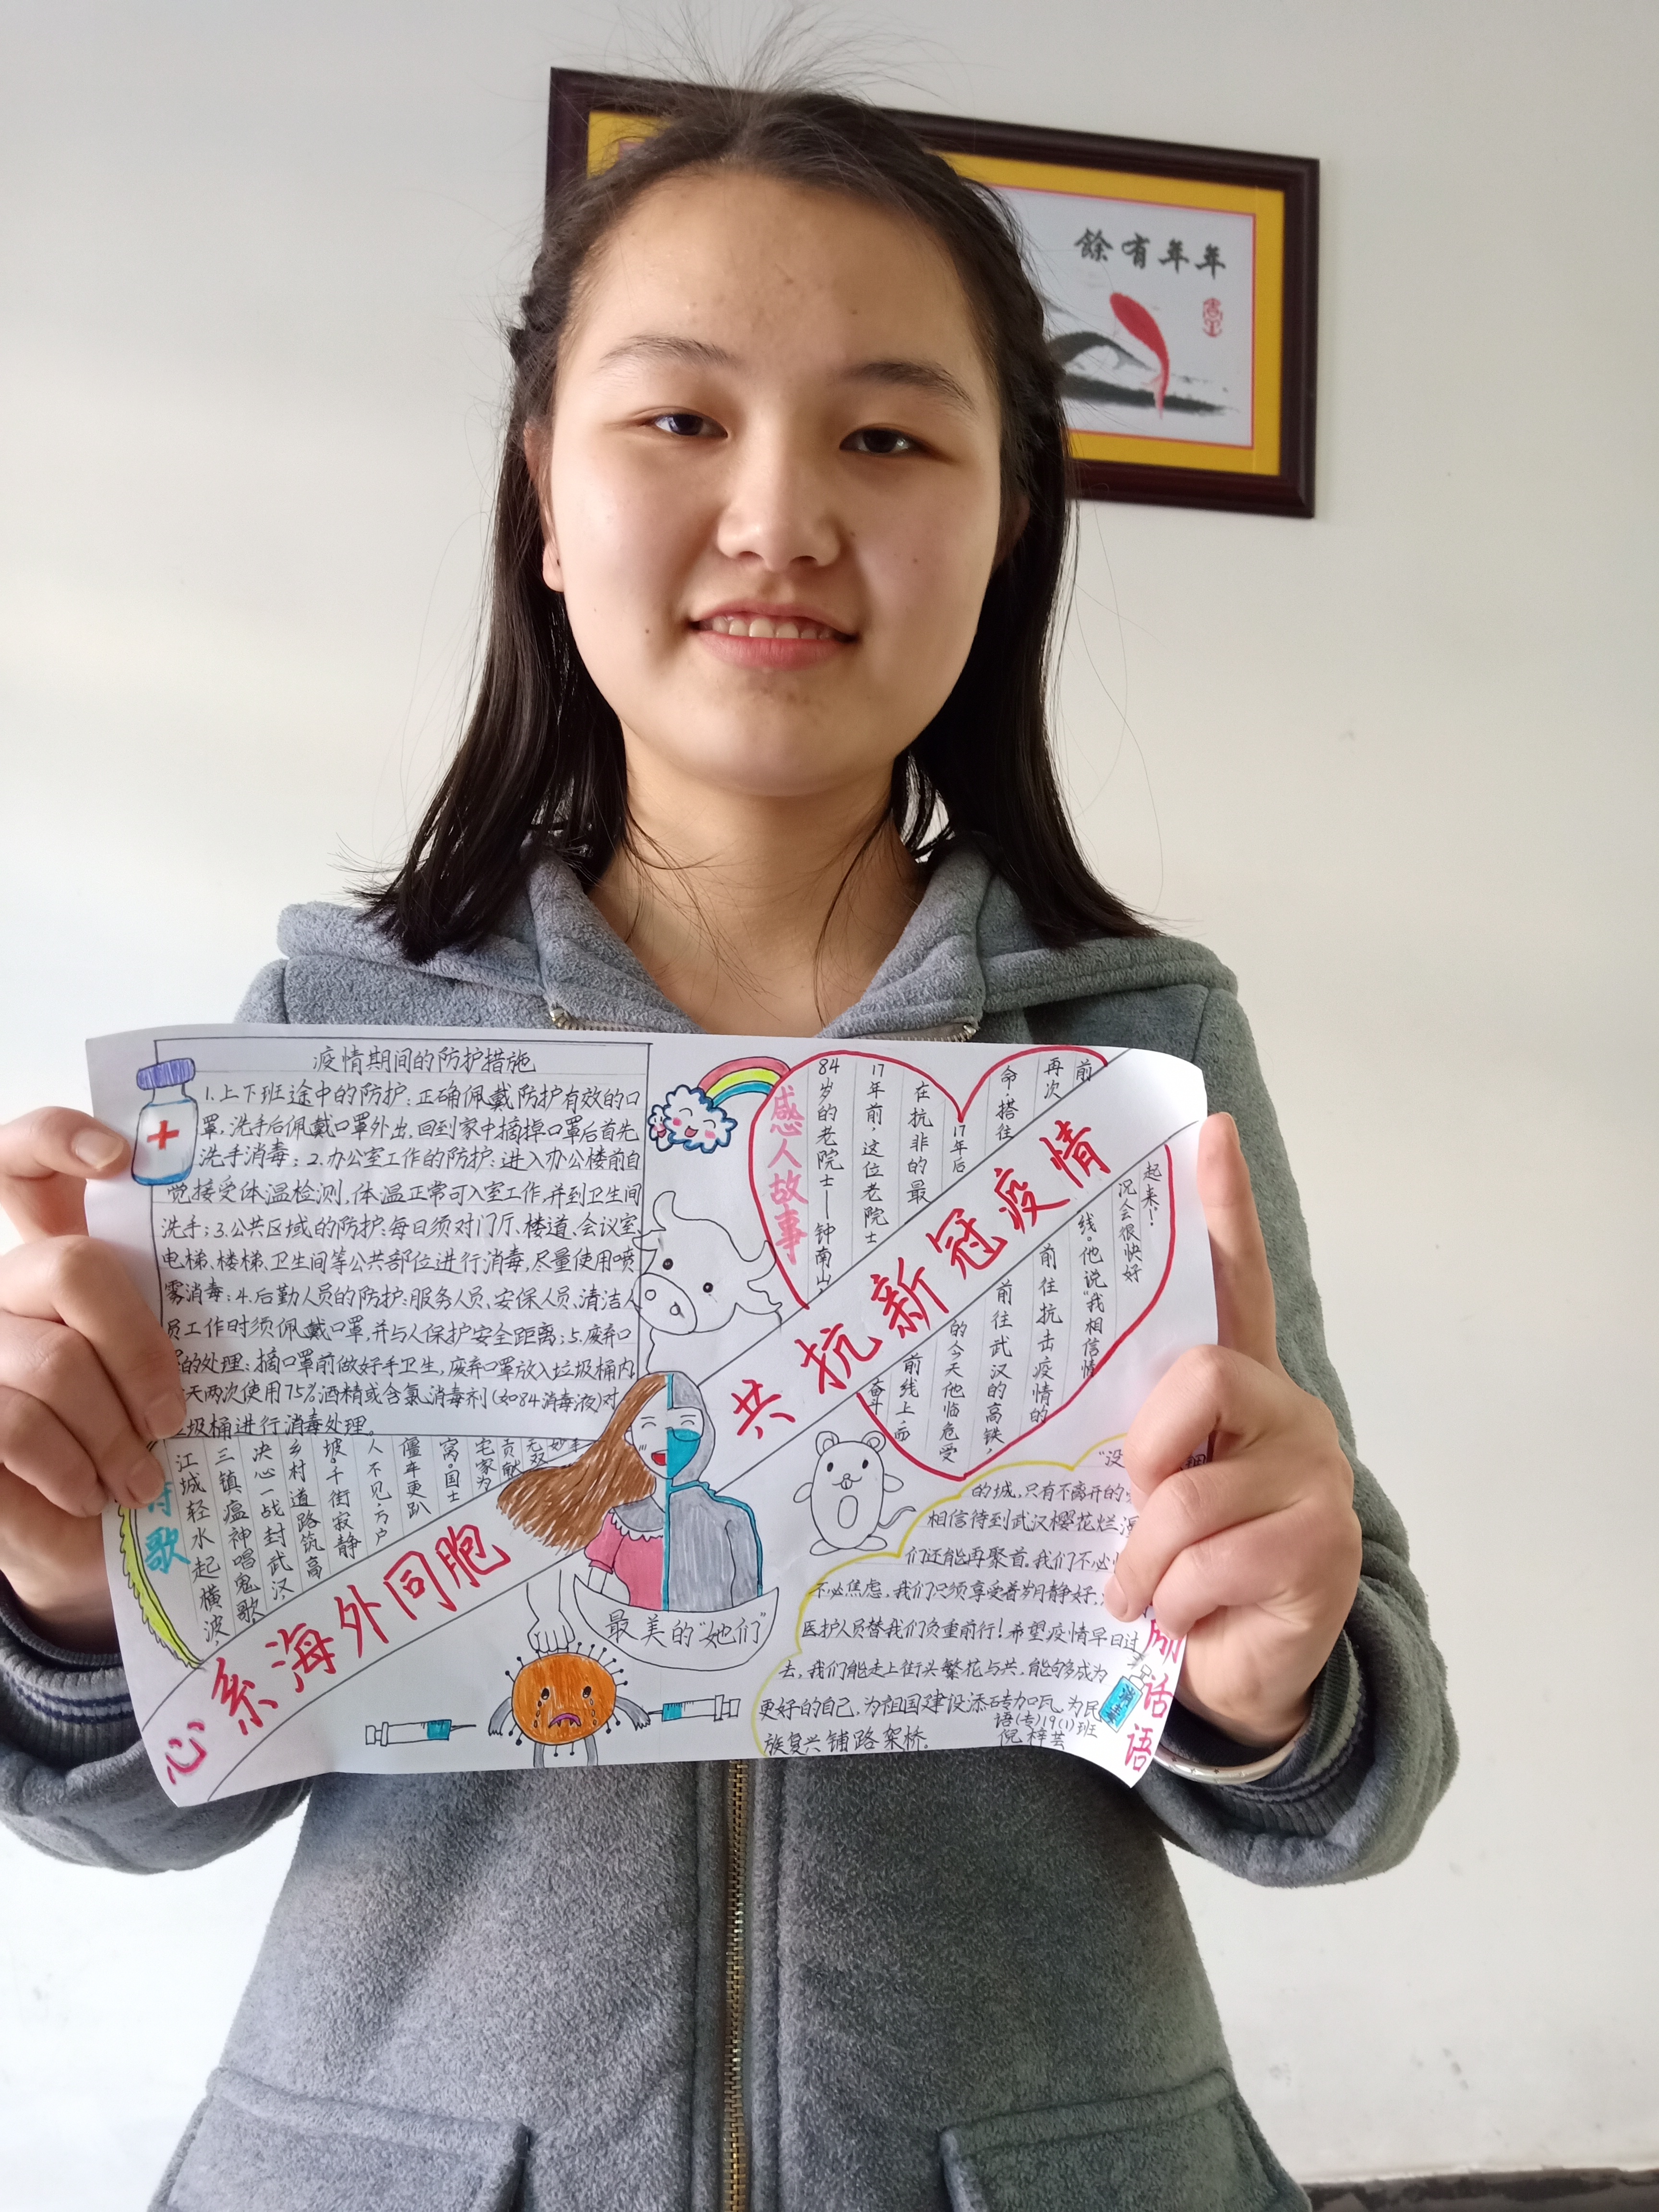 年年有餘
疫情期间的防护措施
1.上下班途中的防护:正确佩戴防护有效的口
罩.洗手后佩戴口罩外出,回到家中摘掉口罩后首先
洗手消毒;2.办公室工作的防护:进入办公楼前自
觉接受体温检测,体温正常可入室工作,并到卫生间
洗手;3.公共区域的防护:每日须对门厅、楼道、会议室
电梯、楼梯、卫生间等公共部位进行消毒,尽量使用喷
雾消毒;4.后勤人员的防护:服务人员、安保人员、清洁人
员工作时须佩戴口罩,并与人保护安全距离;5.废弃口
的处理:摘口罩前做好手卫生,废弃口罩放入垃圾桶内
天两次使用75%酒精或含氯消毒剂(如84消毒液)对
圾桶进行消毒处理。
感人故事
84岁的老院士——钟南山,
17年前,这位老院士
在抗非的最
前线上,而
奋斗
17年后
的今天他临危受
命,搭往
前往武汉的高铁,
再次
前往抗击疫情的
前
线。他说"我相信情
况会很快好
起来!"
心系海外同胞
共抗新冠疫情
诗歌
江城轻水起横波,
三镇瘟神唱鬼歌
决心一战封武汉,
乡村道路筑高
坡。千街寂静
人不见,万户
僵卒更趴
窝。国士
无双
宅家为
贡献
最美的"她们"
"没
的城,只有不离开的
相信待到武汉樱花烂漫
们还能再聚首。我们不必
不必焦虑,我们只须享受着岁月静好,
医护人员替我们负重前行!希望疫情早日过
去,我们能走上街头繁花与共,能够成为
更好的自己,为祖国建设添砖加瓦,为民
族复兴铺路架桥。
语(专)19(1)班
倪梓芸
励话语